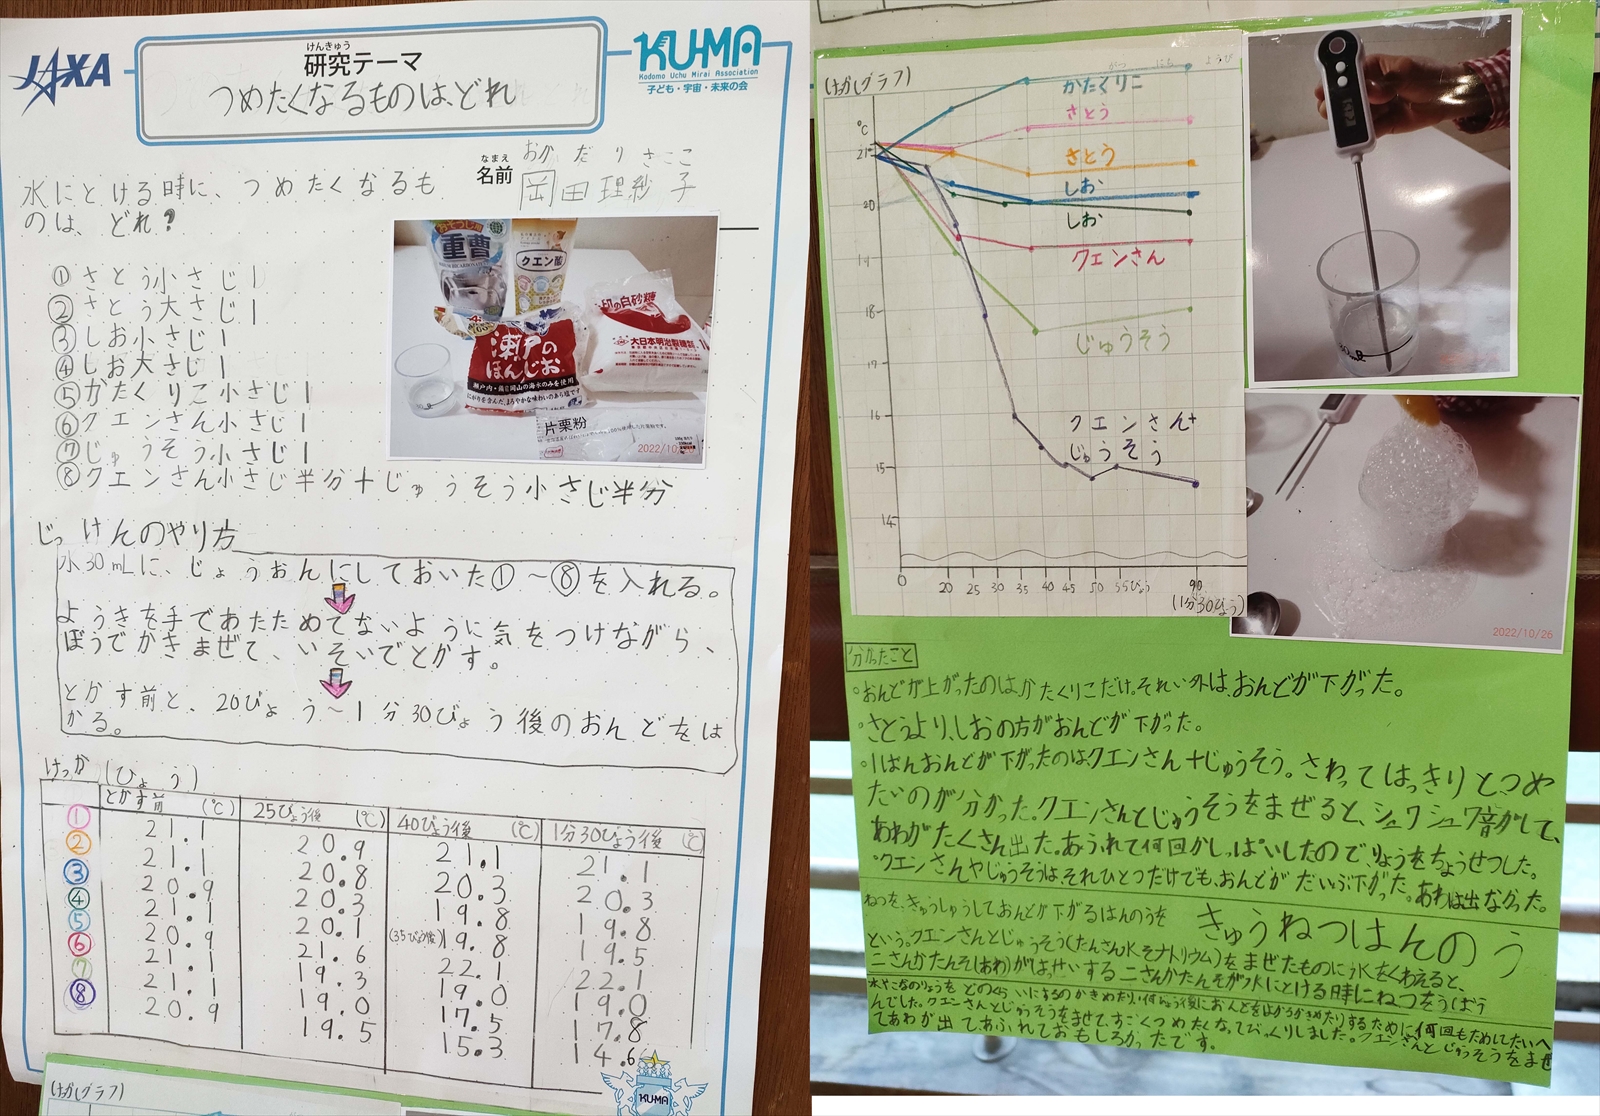 JAXA
けんきゅう
研究テーマ
つめたくなるものは、どれ
KUMA
Kodomo Uchu Mirai Association
子ども・宇宙・未来の会
なまえ
名前
おか だ り さ こ
岡田理紗子
水にとける時に、つめたくなるも
のは、どれ?
①さとう小さじ1
②さとう大さじ1
③しお小さじ1
④しお大さじ1
⑤かたくりこ小さじ1
⑥クエンさん小さじ1
⑦じゅうそう小さじ1
⑧クエンさん小さじ半分+じゅうそう小さじ半分
重曹
クエン酸
瀬戸の
ほんじお
印の白砂糖
大日本明治製糖
片栗粉
じっけんのやり方
水30mLに、じょうおんにしておいた①~⑧を入れる。
ようきを手であたためてないように気をつけながら、
ぼうでかきまぜて、いそいでとかす。
とかす前と、20びょう~1分30びょう後のおんどをは
かる。
けっか
(びょう)
とかす前 (℃) 25びょう後 (℃) 40びょう後 (℃) 1分30びょう後 (℃)
① 21.1 20.9 21.1 21.1
② 21.1 20.8 20.3 20.3
③ 20.9 20.3 19.8 19.8
④ 21.1 20.1 (35びょう後)19.8 19.5
⑤ 20.9 21.6 22.1 22.1
⑥ 21.1 19.3 19.0 19.0
⑦ 21.1 19.0 17.5 17.8
⑧ 20.9 19.5 15.3 14.6
KUMA
(はかしグラフ)
(はかしグラフ)
℃
21
20
19
18
17
16
15
14
かたくりこ
さとう
さとう
しお
しお
クエンさん
じゅうそう
クエンさん+
じゅうそう
0 20 25 35 40 45 50 55びょう 90
(1分30びょう)
2022/10/26
分かったこと
。おんどが上がったのはかたくりこだけ。それい外は、おんどが下がった。
。さとうより、しおの方がおんどが下がった。
。1ばんおんどが下がったのはクエンさん+じゅうそう。さわってはっきりとつめ
たいのが分かった。クエンさんとじゅうそうをまぜると、シュワシュワ音がして、
あわがたくさん出た。あふれて何回かしっぱいしたので、りょうをちょうせつした。
・クエンさんやじゅうそうは、それひとつだけでも、おんどがだいぶ下がった。あわは出なかった。
ねつを、きゅうしゅうしておんどが下がるはんのうを きゅうねつはんのう
という。クエンさんとじゅうそう(たんさん水そナトリウム)をまぜたものに水をくわえると、
ニさんかたんそ(あわ)がはっせいする ニさんかたんそが水にとける時にねつをうばう
水やこなのりょうをどのくらいにするのかきめたり、何びょう後におんどをはかるかきめたりするために、何回もためしてたいへ
んでした。クエンさんとじゅうそうをまぜて、すごくつめたくなってびっくりしました。クエンさんとじゅうそうをまぜ
てあわが出てあふれておもしろかったです。